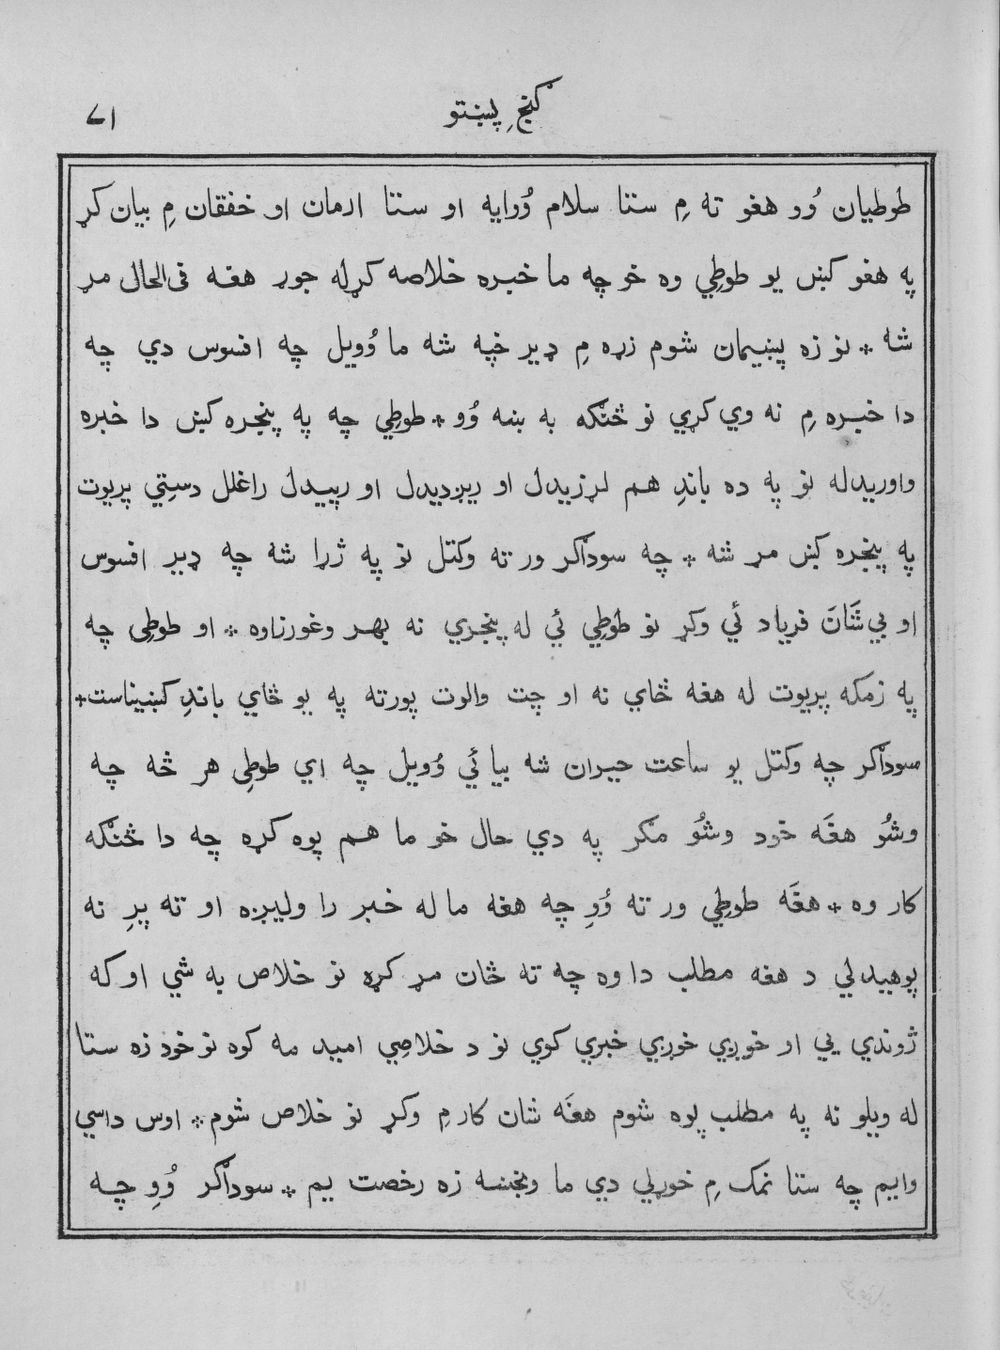 گنجِ پښتو
۷۱
طوطیان وُو هغو ته مِ ستا سلام وُوایه او ستا ارمان او خفقان مِ بیان کړ
په هغو کښ یو طوطِي وه خو چه ما خبره خلاصه کړله جوړ هغه فی‌الحال مړ
شه * نو زه پښیمان شوم زړه مِ ډیر خپه شه ما وُویل چه افسوس دي چه
دا خبره مِ نه وي کړي نو څنګه به ښه وُو * طوطِي چه په پنجره کښ دا خبره
واوریدله نو په ده باندِ هم لړزیدل او ریږدیدل او رپیدل راغلل دستِي پریوت
په پنجره کښ مړ شه * چه سوداګر ورته وکتل نو په ژړا شه چه ډیر افسوس
او بي شَانَ فریاد ئَي وکړ نو طوطِي ئَي له پنجري نه بهر وغورزاوه * او طوطِی چه
په زمکه پریوت له هغه ځاي نه او چت والوت پورته په یو ځاي باندِ کښیناست *
سوداګر چه وکتل یو ساعت حیران شه بیا ئَي وُویل چه اي طوطِی هر څه چه
وشُو هغَه خود وشُو مګر په دي حال خو ما هم پوه کړه چه دا څنګه
کار وه * هغَه طوطِي ورته وُوِ چه هغه ما له خبر را ولیږه او ته پرِ نه
پوهیدلي د هغه مطلب دا وه چه ته ځان مړ کړه نو خلاص به شي او که
ژوندي یي او خوږي خوږي خبري کوي نو د خلاصِي امید مه کوه نو خود زه ستا
له ویلو نه په مطلب پوه شوم هغَه شان کار مِ وکړ نو خلاص شوم * اوس داسي
وایم چه ستا نمک مِ خوړلي دي ما وبخښه زه رخصت یم * سوداګر وُوِ چه